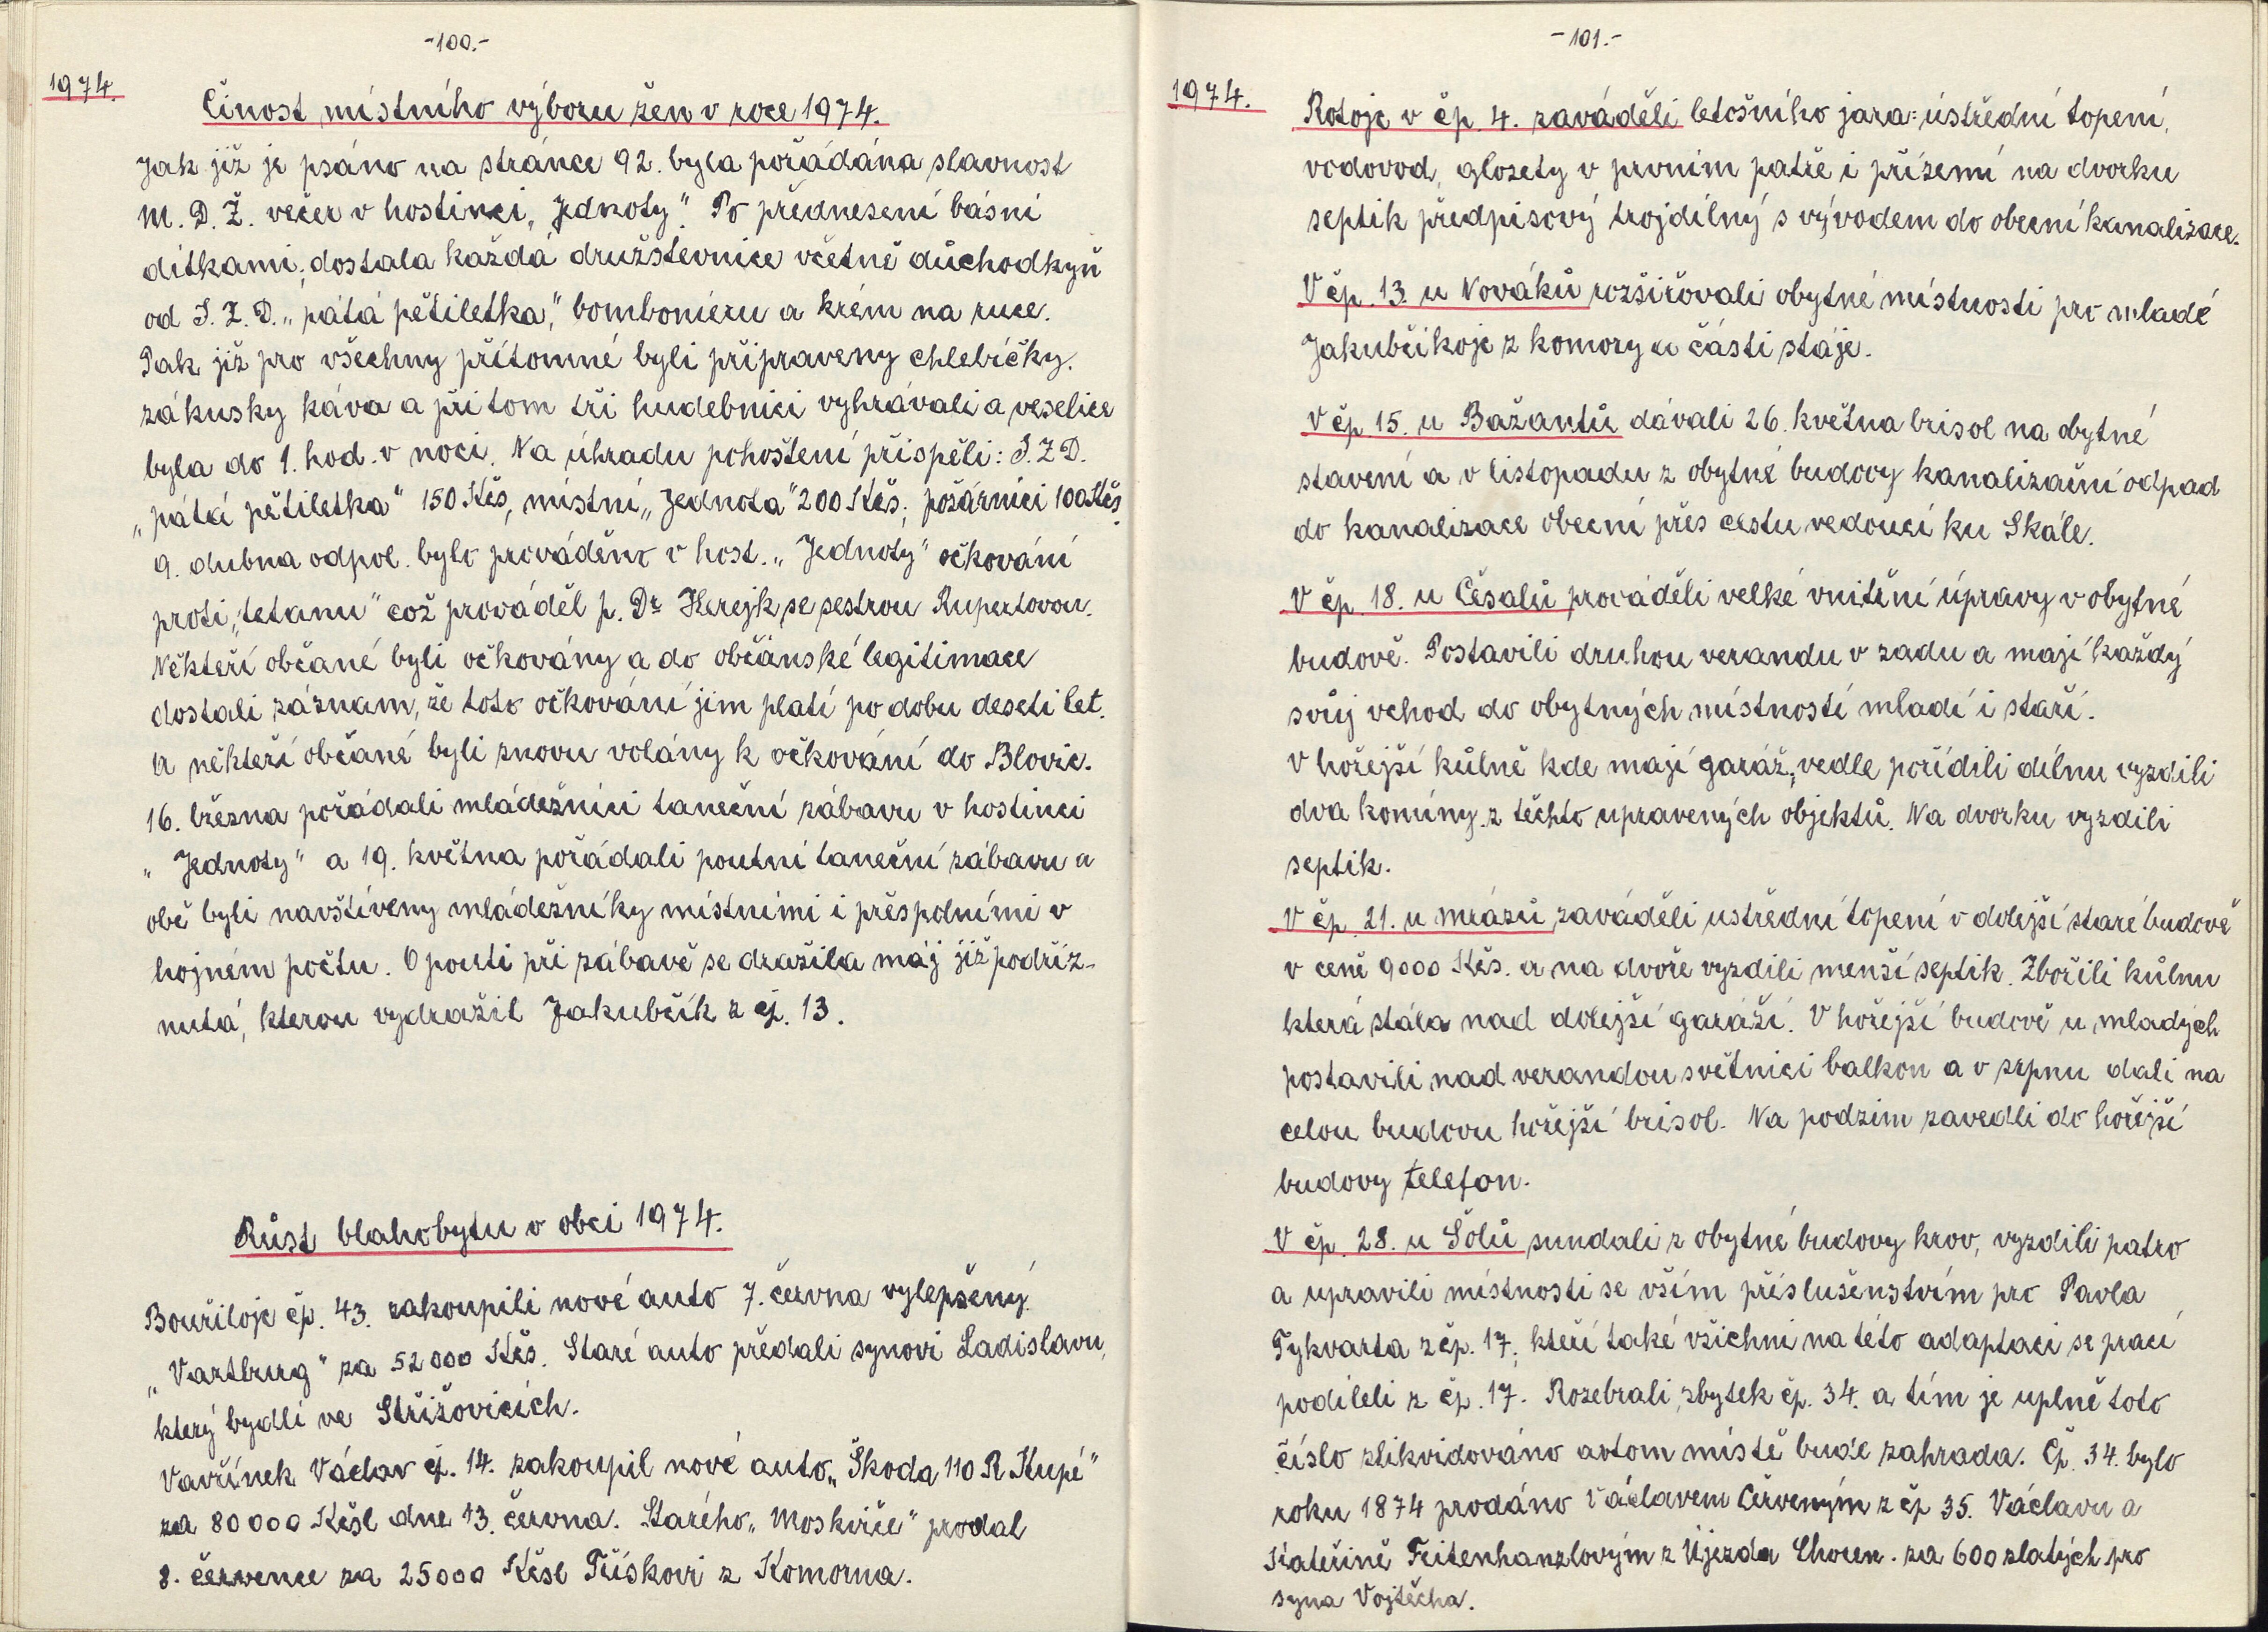 -100.-
1974.
Činost místního výboru žen v roce 1974.
Jak již je psáno na stránce 92. byla pořádána slavnost
M. D. Ž. večer v hostinci „Jednoty". Po přednesení básní
dítkami, dostala každá družstevnice včetně důchodkyň
od J. Z. D. „pátá pětiletka", bombonieru a krém na ruce.
Pak již pro všechny přítomné byli připraveny chlebíčky.
zákusky káva a při tom tři hudebníci vyhrávali a veselice
byla do 1. hod. v noci. Na úhradu pohoštení přispěli: J. Z D.
„pátá pětiletka" 150 Kčs, místní „Jednota" 200 Kčs, požárníci 100 Kčs.
9. dubna odpol. bylo prováděno v host. „Jednoty" očkování
proti „tetanu" což prováděl p. Dr Herejk se sestrou Rupertovou.
Někteří občané byli očkovány a do občánské legitimace
dostali záznam, že toto očkování jim platí po dobu deseti let.
a někteří občané byli znovu volány k očkování do Blovic.
16. března pořádali mládežníci taneční zábavu v hostinci
„Jednoty" a 19. května pořádali poutní taneční zábavu a
obě byli navštíveny mládežníky místními i přespolními v
hojném počtu. O pouti při zábavě se dražila máj již podříz-
nutá, kterou vydražil Jakubčík z čp. 13.
Růst blahobytu v obci 1974.
Bouřiloje čp. 43. zakoupili nové auto 7. června vylepšený
„Vartburg" za 52000 Kčs. Staré auto předali synovi Ladislavu,
který bydlí ve Střížovicích.
Vavřínek Václav čp. 14. zakoupil nové auto „Škoda 110 R Kupé"
za 80000 Kčsl dne 13. června. Starého „Moskviče" prodal
8. července za 25000 Kčsl Tříškovi z Komorna.
-101.-
1974.
Rotoje v čp. 4. zaváděli letošního jara: ústřední topení,
vodovod, glozety v prvním patře i přízemí na dvorku
septik předpisový trojdílný s vývodem do obecní kanalizace.
V čp. 13. u Nováků rozšiřovali obytné místnosti pro mladé
Jakubčíkoje z komory a části stáje.
V čp. 15. u Bažantů dávali 26. května brisol na obytné
stavení a v listopadu z obytné budovy kanalizační odpad
do kanalizace obecní přes cestu vedoucí ku Skále.
V čp. 18. u Česalů prováděli velké vnitřní úpravy v obytné
budově. Postavili druhou verandu v zadu a mají každý
svůj vchod do obytných místností mladí i staří.
V hořejší kůlně kde mají garáž, vedle pořídili dílnu vyzdili
dva komíny z těchto upravených objektů. Na dvorku vyzdili
septik.
V čp. 21. u Mrázů zaváděli ustřední topení v dolejší staré budově
v ceně 9000 Kčs. a na dvoře vyzdili menší septik. Zbořili kůlnu
která stála nad dolejší garáží. V hořejší budově u mladých
postavili nad verandou světnici balkon a v srpnu dali na
celou budovu hořejší brisol. Na podzim zavedli do hořejší
budovy telefon.
V čp. 28. u Šolů sundali z obytné budovy krov, vyzdili patro
a upravili místnosti se vším příslušenstvím pro Pavla
Tykvarta z čp. 17, kteří také všichni na této adaptaci se prací
podíleli z čp. 17. Rozebrali zbytek čp. 34. a tím je uplně toto
číslo zlikvidováno a v tom místě bude zahrada. Čp. 34. bylo
roku 1874 prodáno Václavem Červeným z čp 35. Václavu a
Kateřině Feitenhanzlovým z Újezda Chocen. za 600 zlatých pro
syna Vojtěcha.